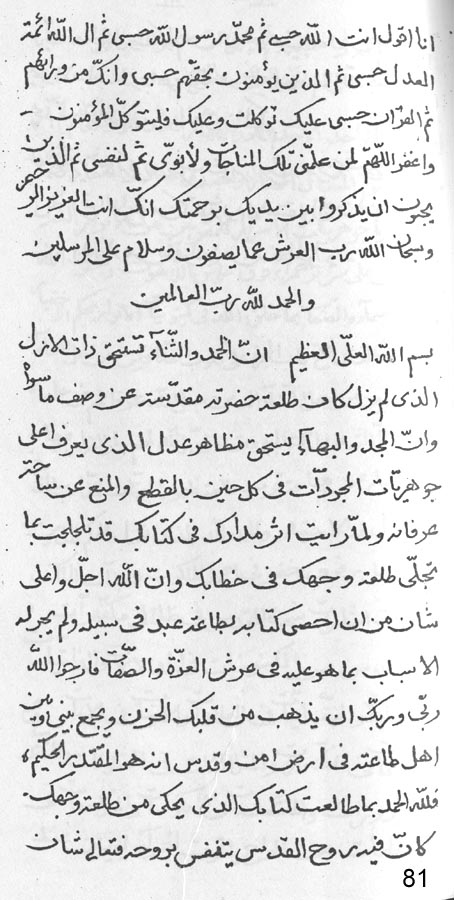 انا اقول انت الله حسبي ثم محمد رسول الله حسبي ثم ال الله ائمة
العدل حسبي ثم الذين يؤمنون بحقهم حسبي وانك من ورائهم
ثم القران حسبي عليك توكلت وعليك فليتوكل المؤمنون
واغفر اللهم لمن علمني تلك المناجات ولأبوى ثم لنفسي ثم الذين
يحبون ان يذكروا بين يديك برحمتك انك انت العزيز الرحيم
وسبحان الله رب العرش عما يصفون وسلام على المرسلين
والحمد لله رب العالمين
بسم الله العلى العظيم ان الحمد والثناء تستحق ذات الازل
الذى لم يزل كاف طلعة حضرته مقدسة عن وصف ما سواه
وان المجد والبهاء يستحق مظاهر عدل الذى يعرف اعلى
جوهريات المجردات في كل حين بالقطع والمنع عن ساحة
عرفانه ولما رايت اثر مدادك في كتابك قد تلجلجت بما
تجلى طلعة وجهك في خطابك وان الله اجل واعلى
شان من ان احصى كتابه بطاعة عبد في سبيله ولم يجر له
الاسباب بما هو عليه في عرش العزة والصفات فارجوا الله
ربي وربك ان يذهب من قلبك الحزن ويجمع بيني وبين
اهل طاعته في ارض امن وقدس انه هو المقتدر الحكيم
فلله الحمد بما طالعت كتابك الذى يحكى من طلعة وجهك
كان فيه روح القدس يتنفس بروحه فتعالى شان
81